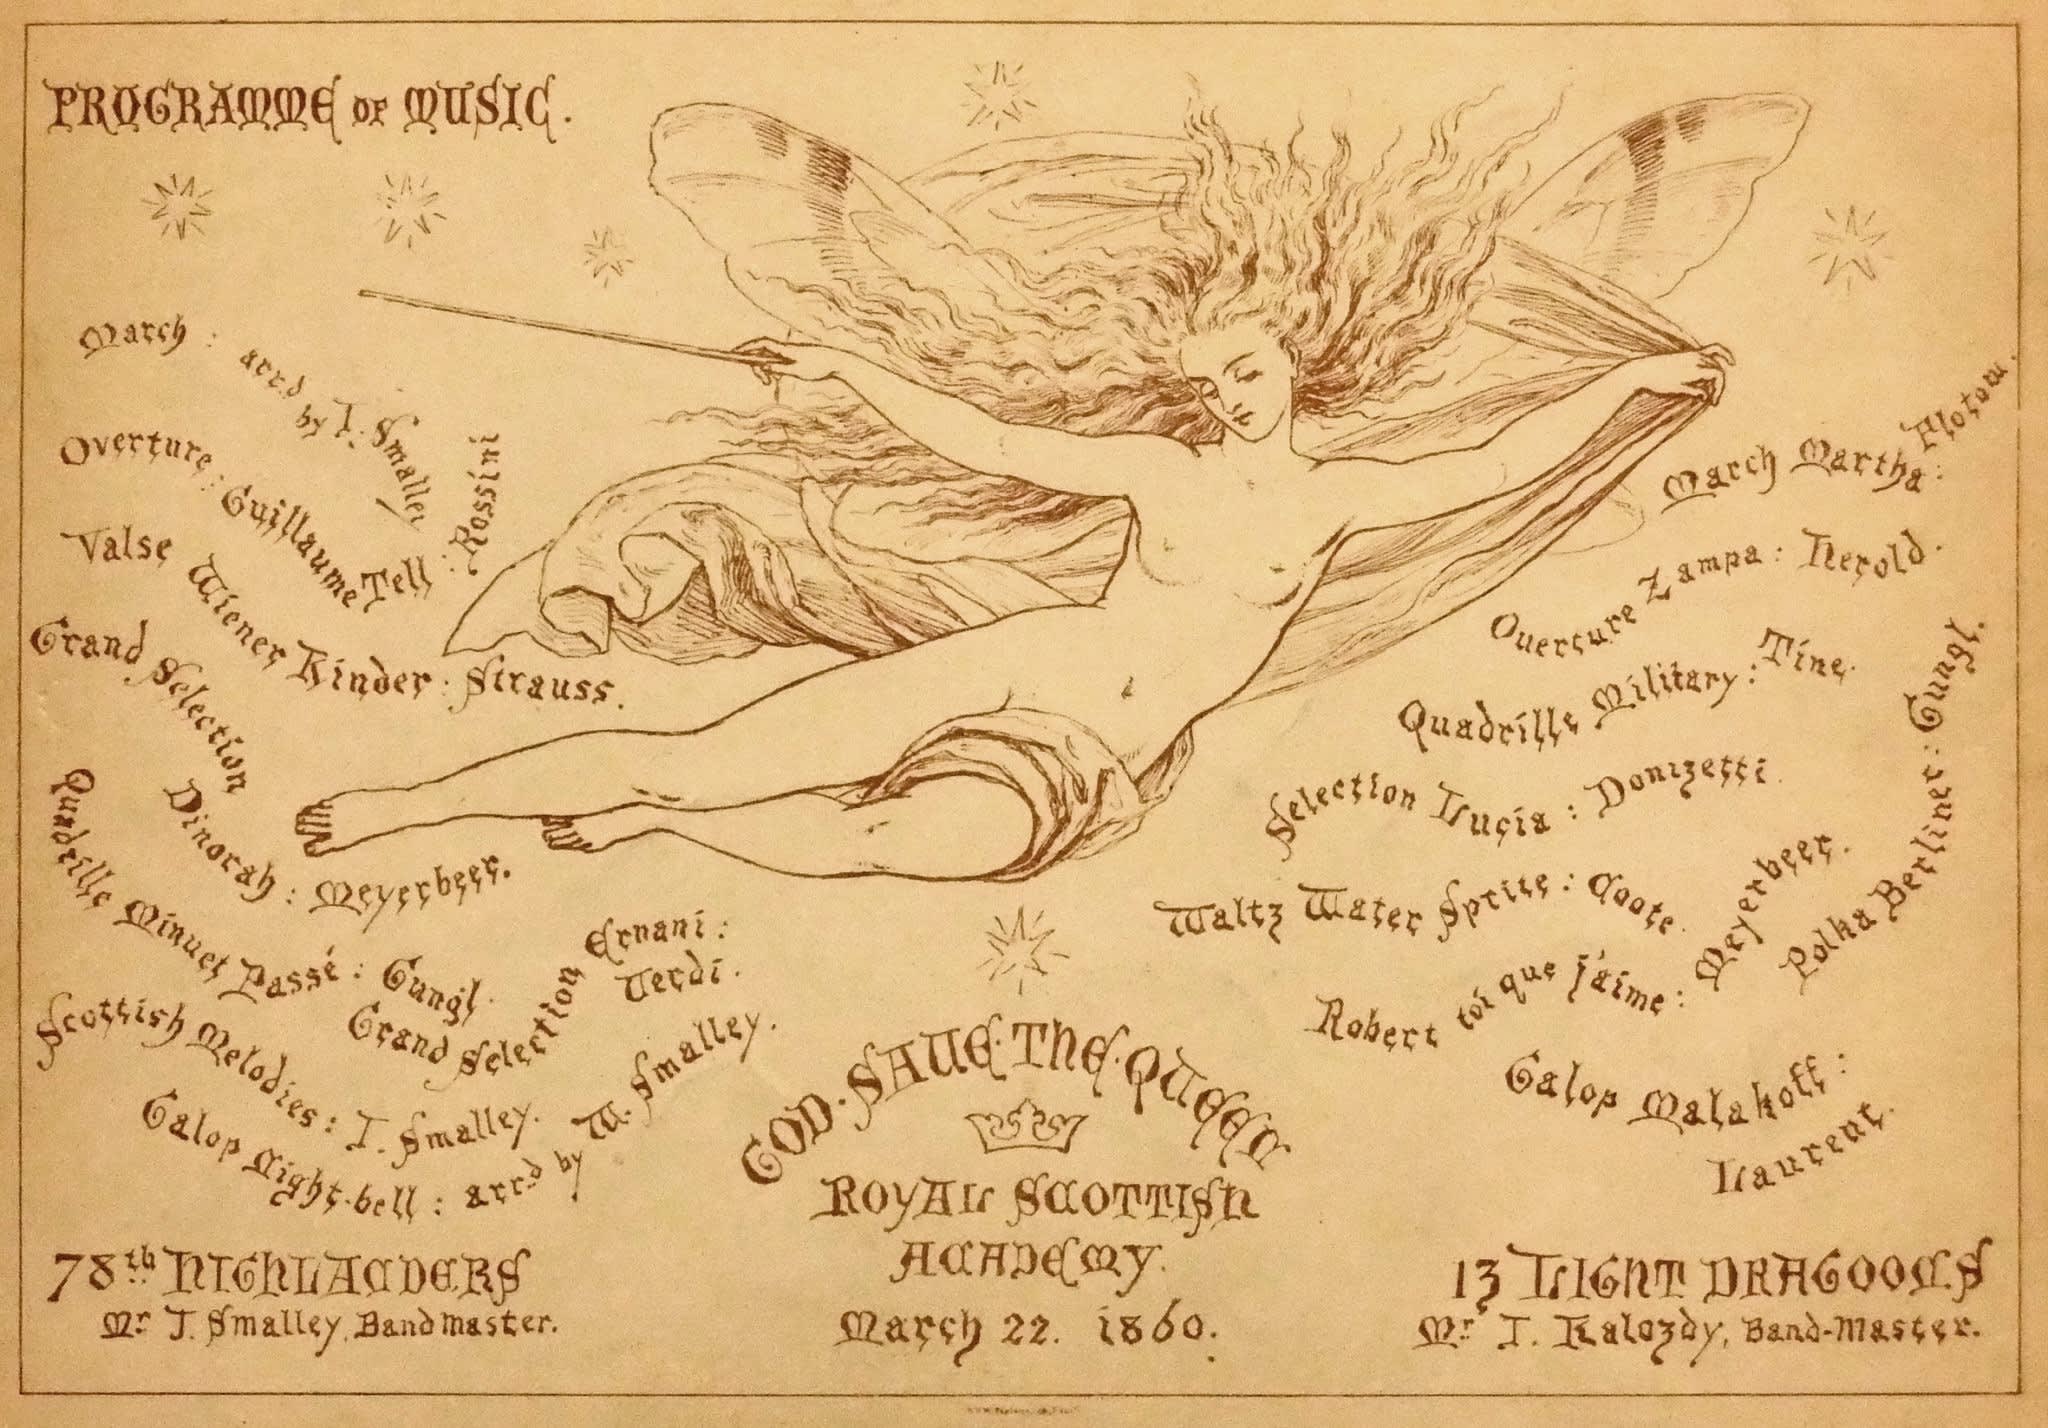 PROGRAMME OF MUSIC.
March : arr.d by T. Smalley
Overture : Guillaume Tell : Rossini
Valse Wiener Kinder : Strauss.
Grand Selection
Dinorah : Meyerbeer.
Quadrille Minuet Passé : Gungl.
Grand Selection Ernani :
Verdi.
Scottish Melodies : T. Smalley.
Galop Night-bell : arr.d by W. Smalley.
78th HIGHLANDERS
Mr T. Smalley, Bandmaster.
GOD · SAVE · THE · QUEEN
ROYAL SCOTTISH
ACADEMY.
March 22. 1860.
March Martha : Flotow.
Overture Zampa : Herold.
Quadrille Military : Tine.
Selection Lucia : Donizetti.
Waltz Water Sprite : Coote.
Robert toi que j'aime : Meyerbeer.
Polka Berliner : Gungl.
Galop Malakoff :
Laurent.
13 LIGHT DRAGOONS
Mr T. Kalozdy, Band-Master.